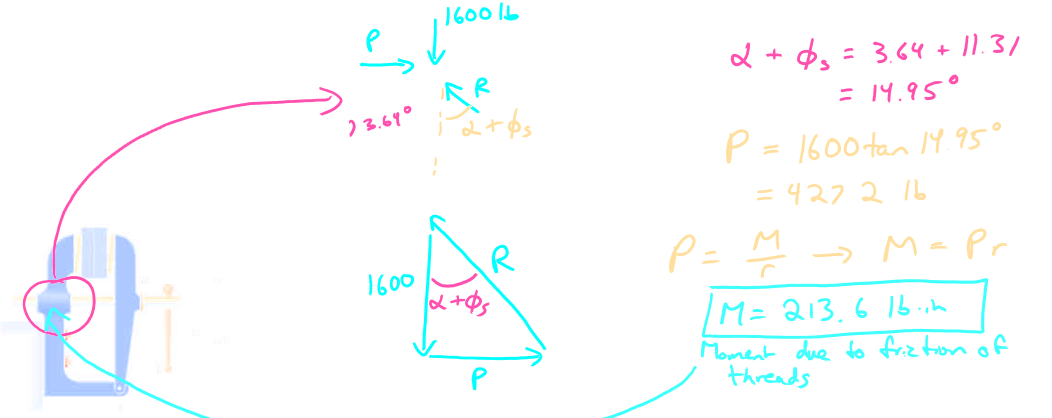 1600 lb
P
R
) 3.64°
α + ϕs
1600
R
α+ϕs
P
α + ϕs = 3.64 + 11.31
= 14.95°
P = 1600 tan 14.95°
= 427.2 lb
P = M/r → M = Pr
M = 213.6 lb·in
Moment due to friction of
threads